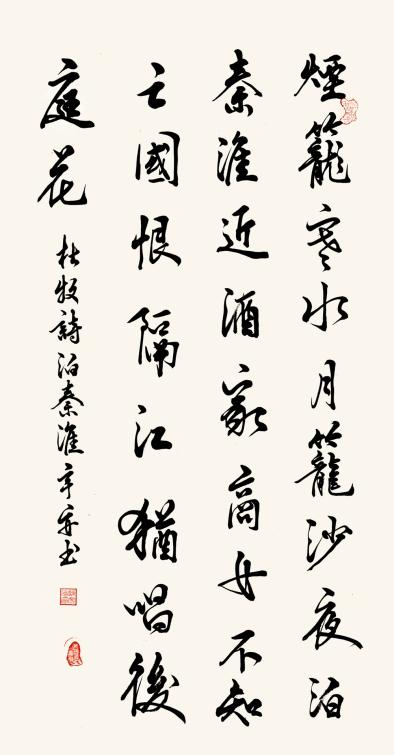 煙籠寒水月籠沙夜泊
秦淮近酒家商女不知
亡國恨隔江猶唱後
庭花
杜牧詩泊秦淮辛书